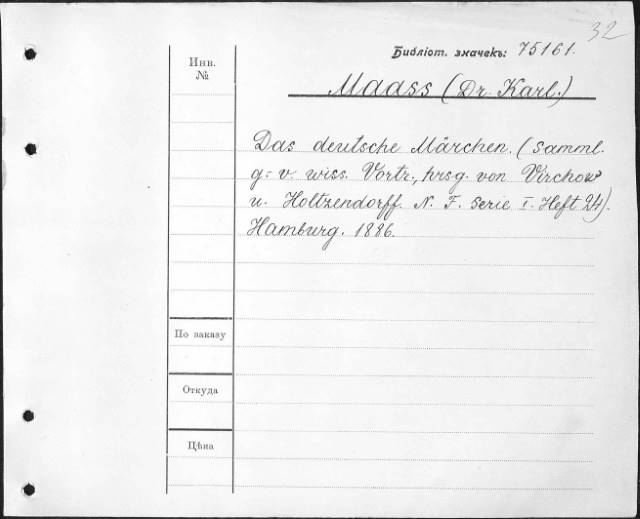 32
Библіот. значекъ: 75161.
Инв.
№
Maass (Dr. Karl.)
Das deutsche Märchen. (Samml.
g. v. wiss. Vortr., hrsg. von Virchow
u. Holtzendorff. N. F. Serie I. Heft 24).
Hamburg. 1886.
По заказу
Откуда
Цѣна